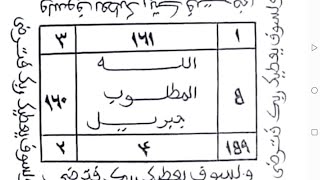 ولسوف يعطيك ربك فترضى
١ ١٦١ ٣
الله
المطلوب
جبريل
٥ ١٦٠
١٥٩ ٤ ٢
ولسوف يعطيك ربك فترضى
ولسوف يعطيك ربك فترضى
ولسوف يعطيك ربك فترضى